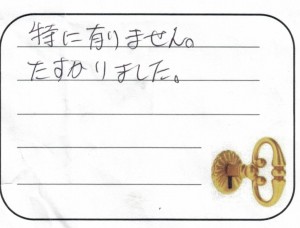 特に有りません。
たすかりました。